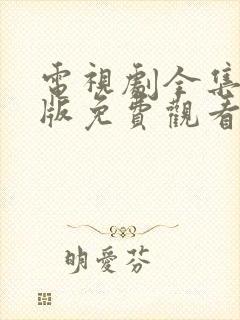 電視劇全集
版免費觀看
明愛芬